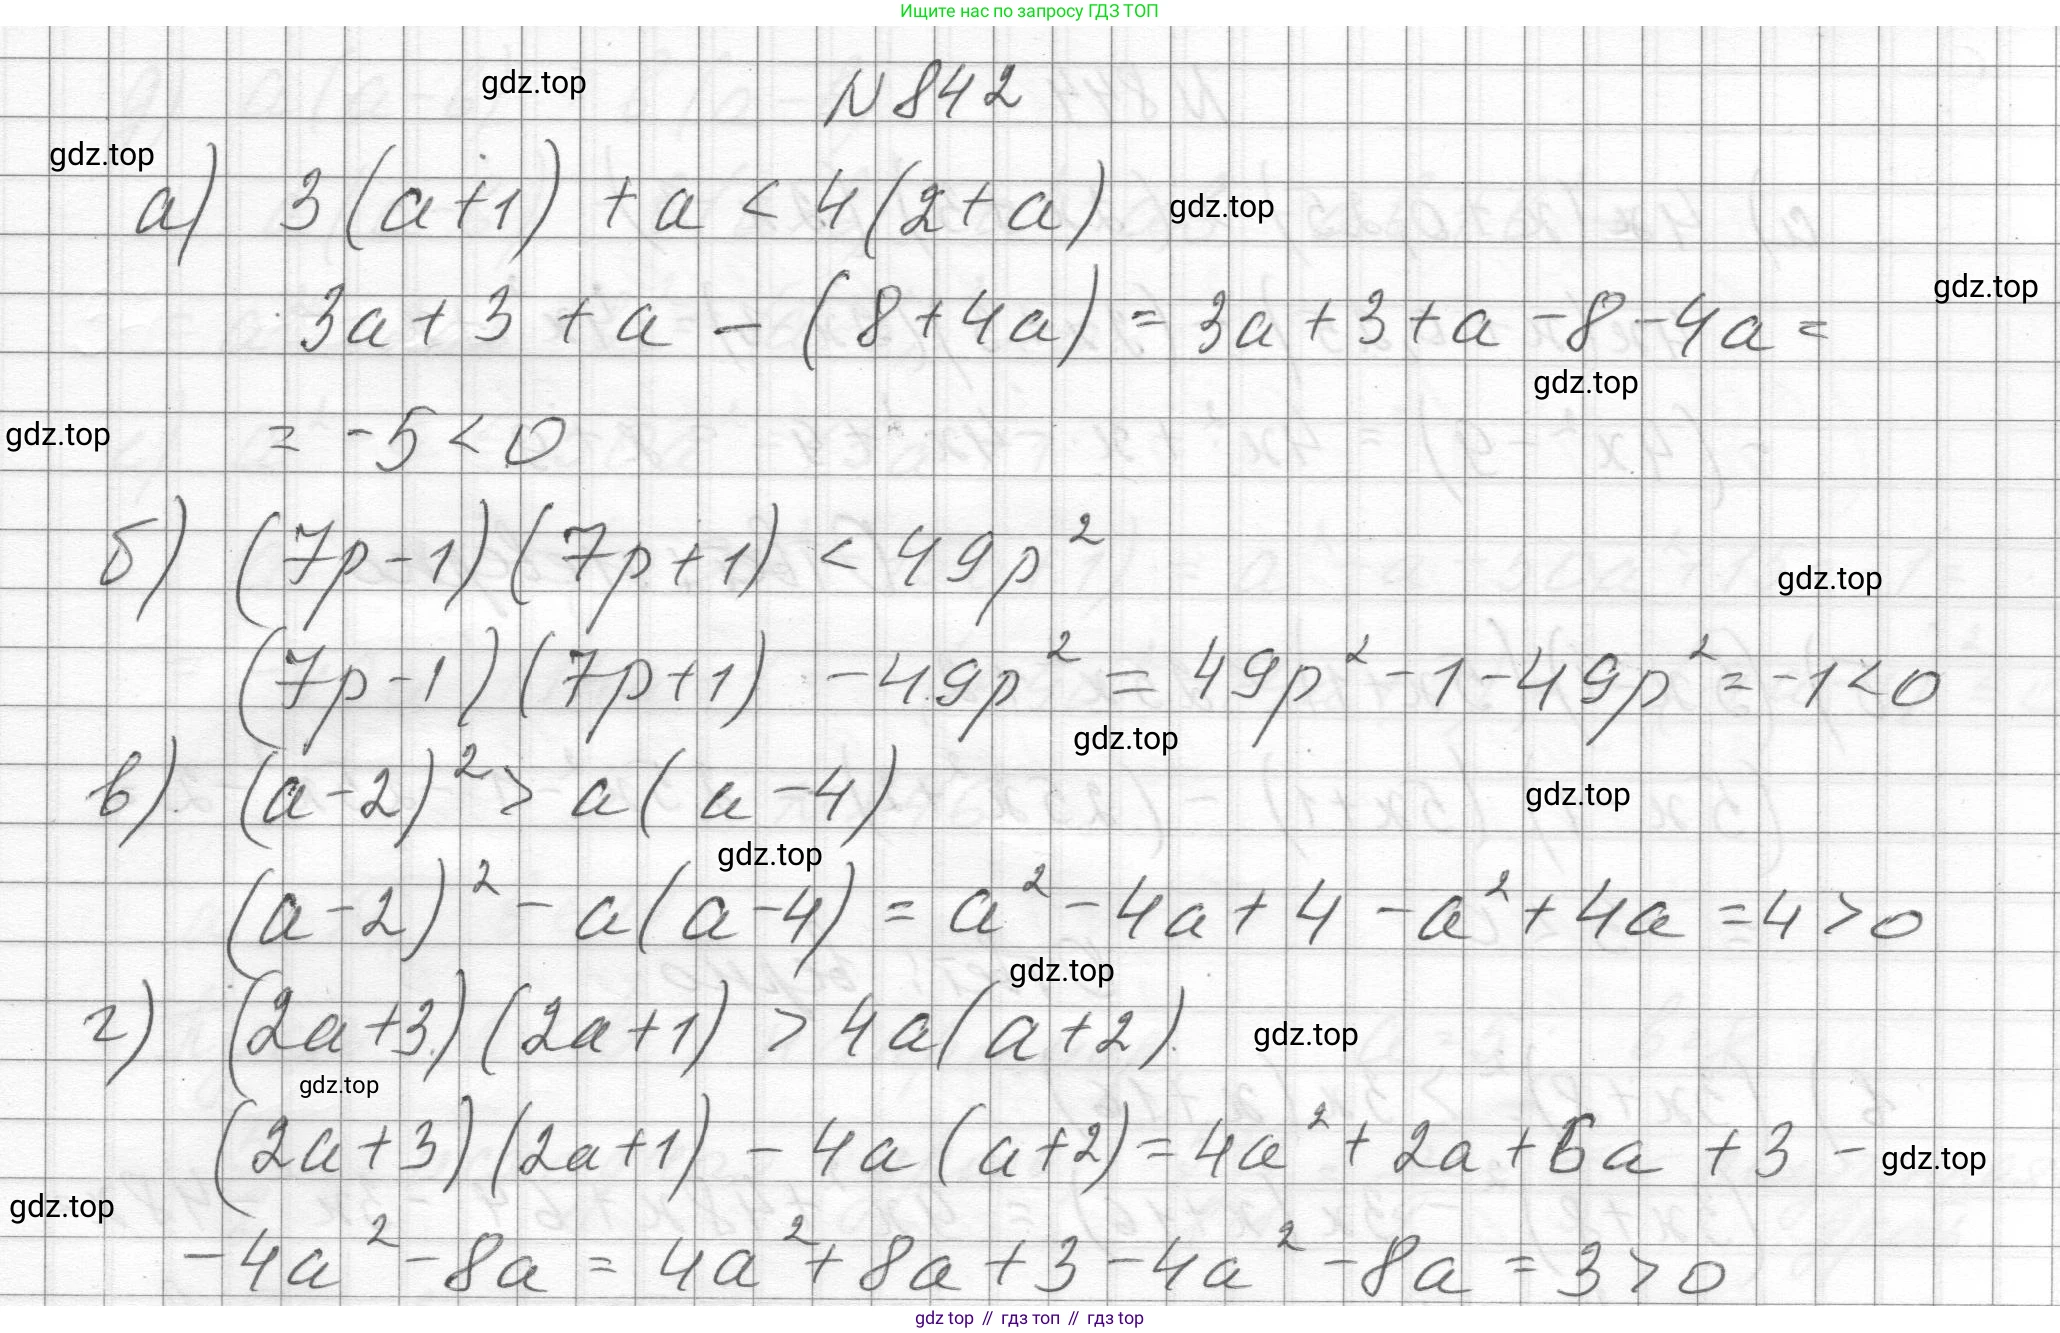 Ищите нас по запросу ГДЗ ТОП
gdz.top
N 842
gdz.top
а) 3(a+1) + a < 4(2+a)
gdz.top
gdz.top
3a + 3 + a - (8 + 4a) = 3a + 3 + a - 8 - 4a =
gdz.top
gdz.top
= -5 < 0
б) (7p-1)(7p+1) < 49p²
gdz.top
(7p-1)(7p+1) - 49p² = 49p² - 1 - 49p² = -1 < 0
gdz.top
в) (a-2)² > a(a-4)
gdz.top
gdz.top
(a-2)² - a(a-4) = a² - 4a + 4 - a² + 4a = 4 > 0
gdz.top
г) (2a+3)(2a+1) > 4a(a+2)
gdz.top
gdz.top
(2a+3)(2a+1) - 4a(a+2) = 4a² + 2a + 6a + 3 -
gdz.top
gdz.top
- 4a² - 8a = 4a² + 8a + 3 - 4a² - 8a = 3 > 0
gdz top // гдз топ // gdz top